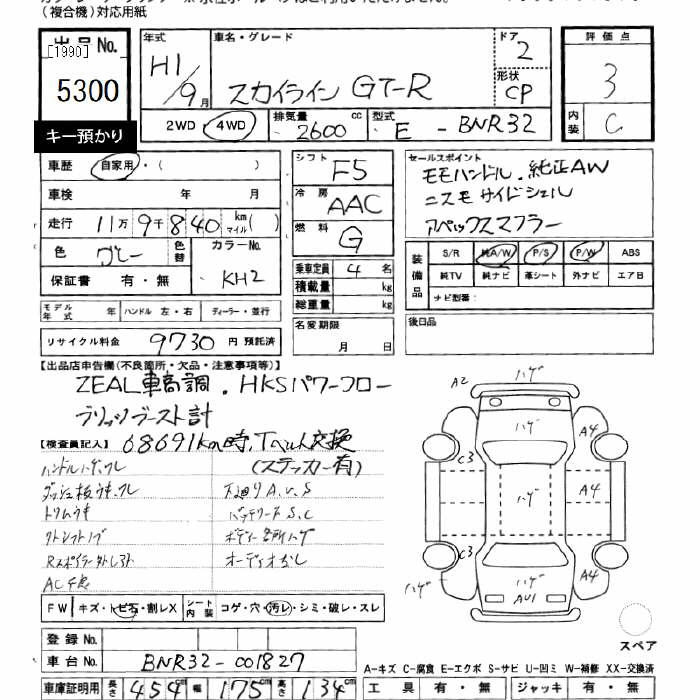 （複合機）対応用紙
出品No.
[1990]
5300
キー預かり
年式
H1/9月
車名・グレード
スカイライン GT-R
ドア
2
形状
CP
評価点
3
内装
C
2WD 4WD
排気量
2600 cc
型式
E - BNR32
車歴 自家用・( )
車検 年 月
走行 11万9千840 km マイル( )
色 グレー 色替
カラーNo.
KH2
保証書 有・無
シフト
F5
冷房
AAC
燃料
G
乗車定員 4 名
積載量 kg
総重量 kg
セールスポイント
モモハンドル.純正AW
ニスモサイドシェル
アペックスマフラー
装備品
S/R 純A/W P/S P/W ABS
純TV 純ナビ 革シート 外ナビ エアB
ナビ型番：
モデル年式 年 ハンドル 左・右 ディーラー・並行
リサイクル料金 9730 円 預託済
名変期限
月 日
後日品
【出品店申告欄(不良箇所・欠品・注意事項等)】
ZEAL車高調.HKSパワーフロー
ブリッツブースト計
【検査員記入】 68691km時.Tベルト交換
(ステッカー有)
ハンドルハゲ.スレ
トリムウキ
下廻りA.U.S
バッテリーS.C
ボディー各所ハゲ
A2 ハゲ
ハゲ A4
C3
ハゲ A4
C3
ハゲ A4
ハゲ
AU1
スペア
FW キズ・トビ石・割レX シート内装 コゲ・穴・汚レ・シミ・破レ・スレ
登録No.
車台No. BNR32-001827
車庫証明用 長さ 454cm 幅 175cm 高さ 134cm
A-キズ C-腐食 E-エクボ S-サビ U-凹ミ W-補修 XX-交換済
工具 有・無 ジャッキ 有・無